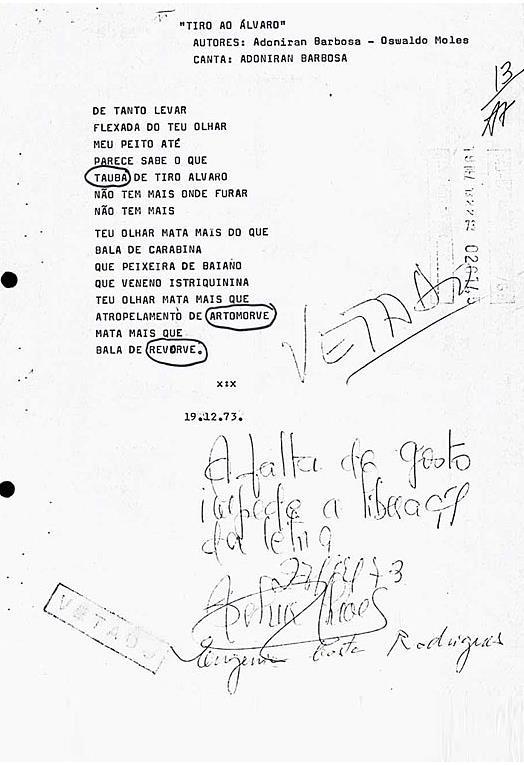 "TIRO AO ÁLVARO"
AUTORES: Adoniran Barbosa - Oswaldo Moles
CANTA: ADONIRAN BARBOSA
13
DE TANTO LEVAR
FLEXADA DO TEU OLHAR
MEU PEITO ATÉ
PARECE SABE O QUE
TAUBA DE TIRO ALVARO
NÃO TEM MAIS ONDE FURAR
NÃO TEM MAIS
TEU OLHAR MATA MAIS DO QUE
BALA DE CARABINA
QUE PEIXEIRA DE BAIANO
QUE VENENO ISTRIQUININA
TEU OLHAR MATA MAIS QUE
ATROPELAMENTO DE ARTOMORVE
MATA MAIS QUE
BALA DE REVORVE.
VETADO
x:x
19.12.73.
A falta de gosto
impede a liberação
da letra
VETADO
Costa Rodrigues